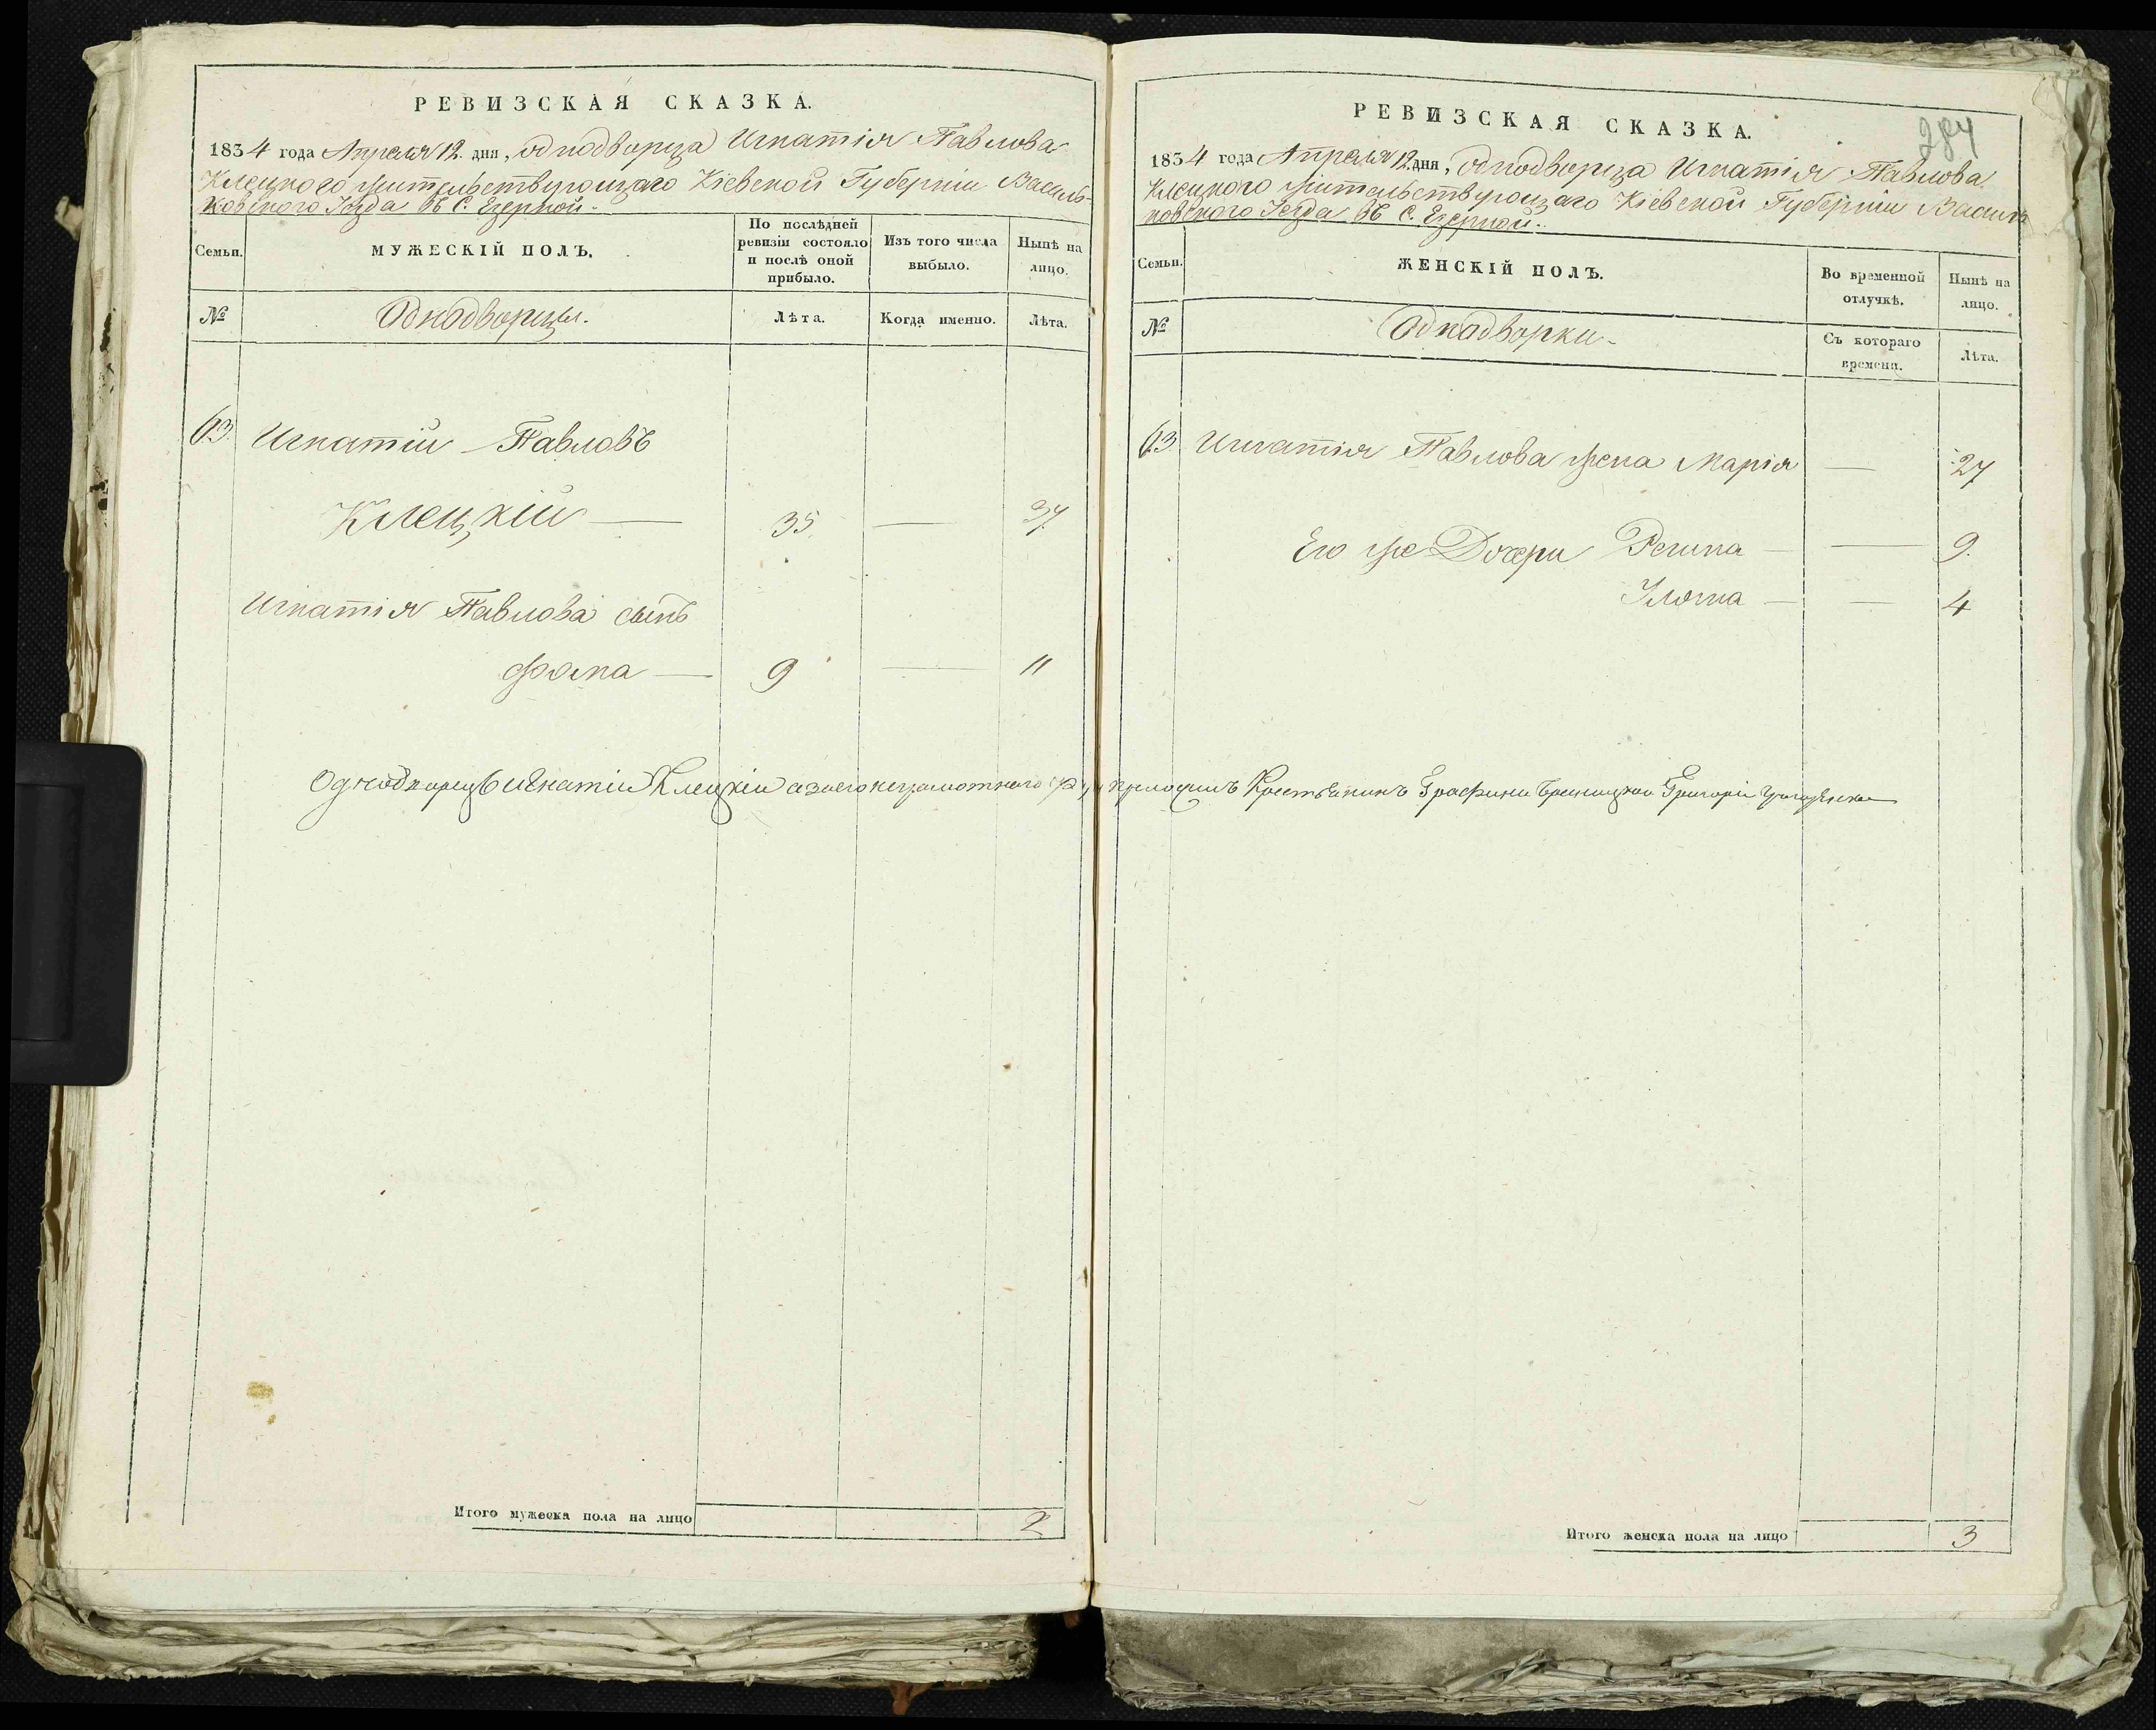 РЕВИЗСКАЯ СКАЗКА.
1834 года Апреля 12. дня, однодворца Игнатія Павлова
Клецкого жительствующаго Кіевской Губерніи Василь-
ковского Уезда въ С. Езерной.
Семьи.
МУЖЕСКІЙ ПОЛЪ.
По послѣдней
ревизіи состояло
и послѣ оной
прибыло.
Изъ того числа
выбыло.
Нынѣ на
лицо.
№
Однодворцы.
Лѣта.
Когда именно.
Лѣта.
63. Игнатій Павловъ
Клецкій — 35. — 37.
Игнатія Павлова сынъ
Фома — 9 — 11
Однодворецъ Игнатій Клецкій а за его неграмотнаго
Итого мужеска пола на лицо 2
284
РЕВИЗСКАЯ СКАЗКА.
1834 года Апреля 12. дня, однодворца Игнатія Павлова
Клецкого жительствующаго Кіевской Губерніи Василь
ковского Уезда въ С. Езерной.
Семьи.
ЖЕНСКІЙ ПОЛЪ.
Во временной
отлучкѣ.
Нынѣ на
лицо.
№
Однодворки
Съ котораго
времени.
Лѣта.
63 Игнатія Павлова жена Марія — 27
Его же Дочери Регина — — 9.
— — 4
приложилъ Крестьянинъ Графини Браницкой Григорій
Итого женска пола на лицо 3